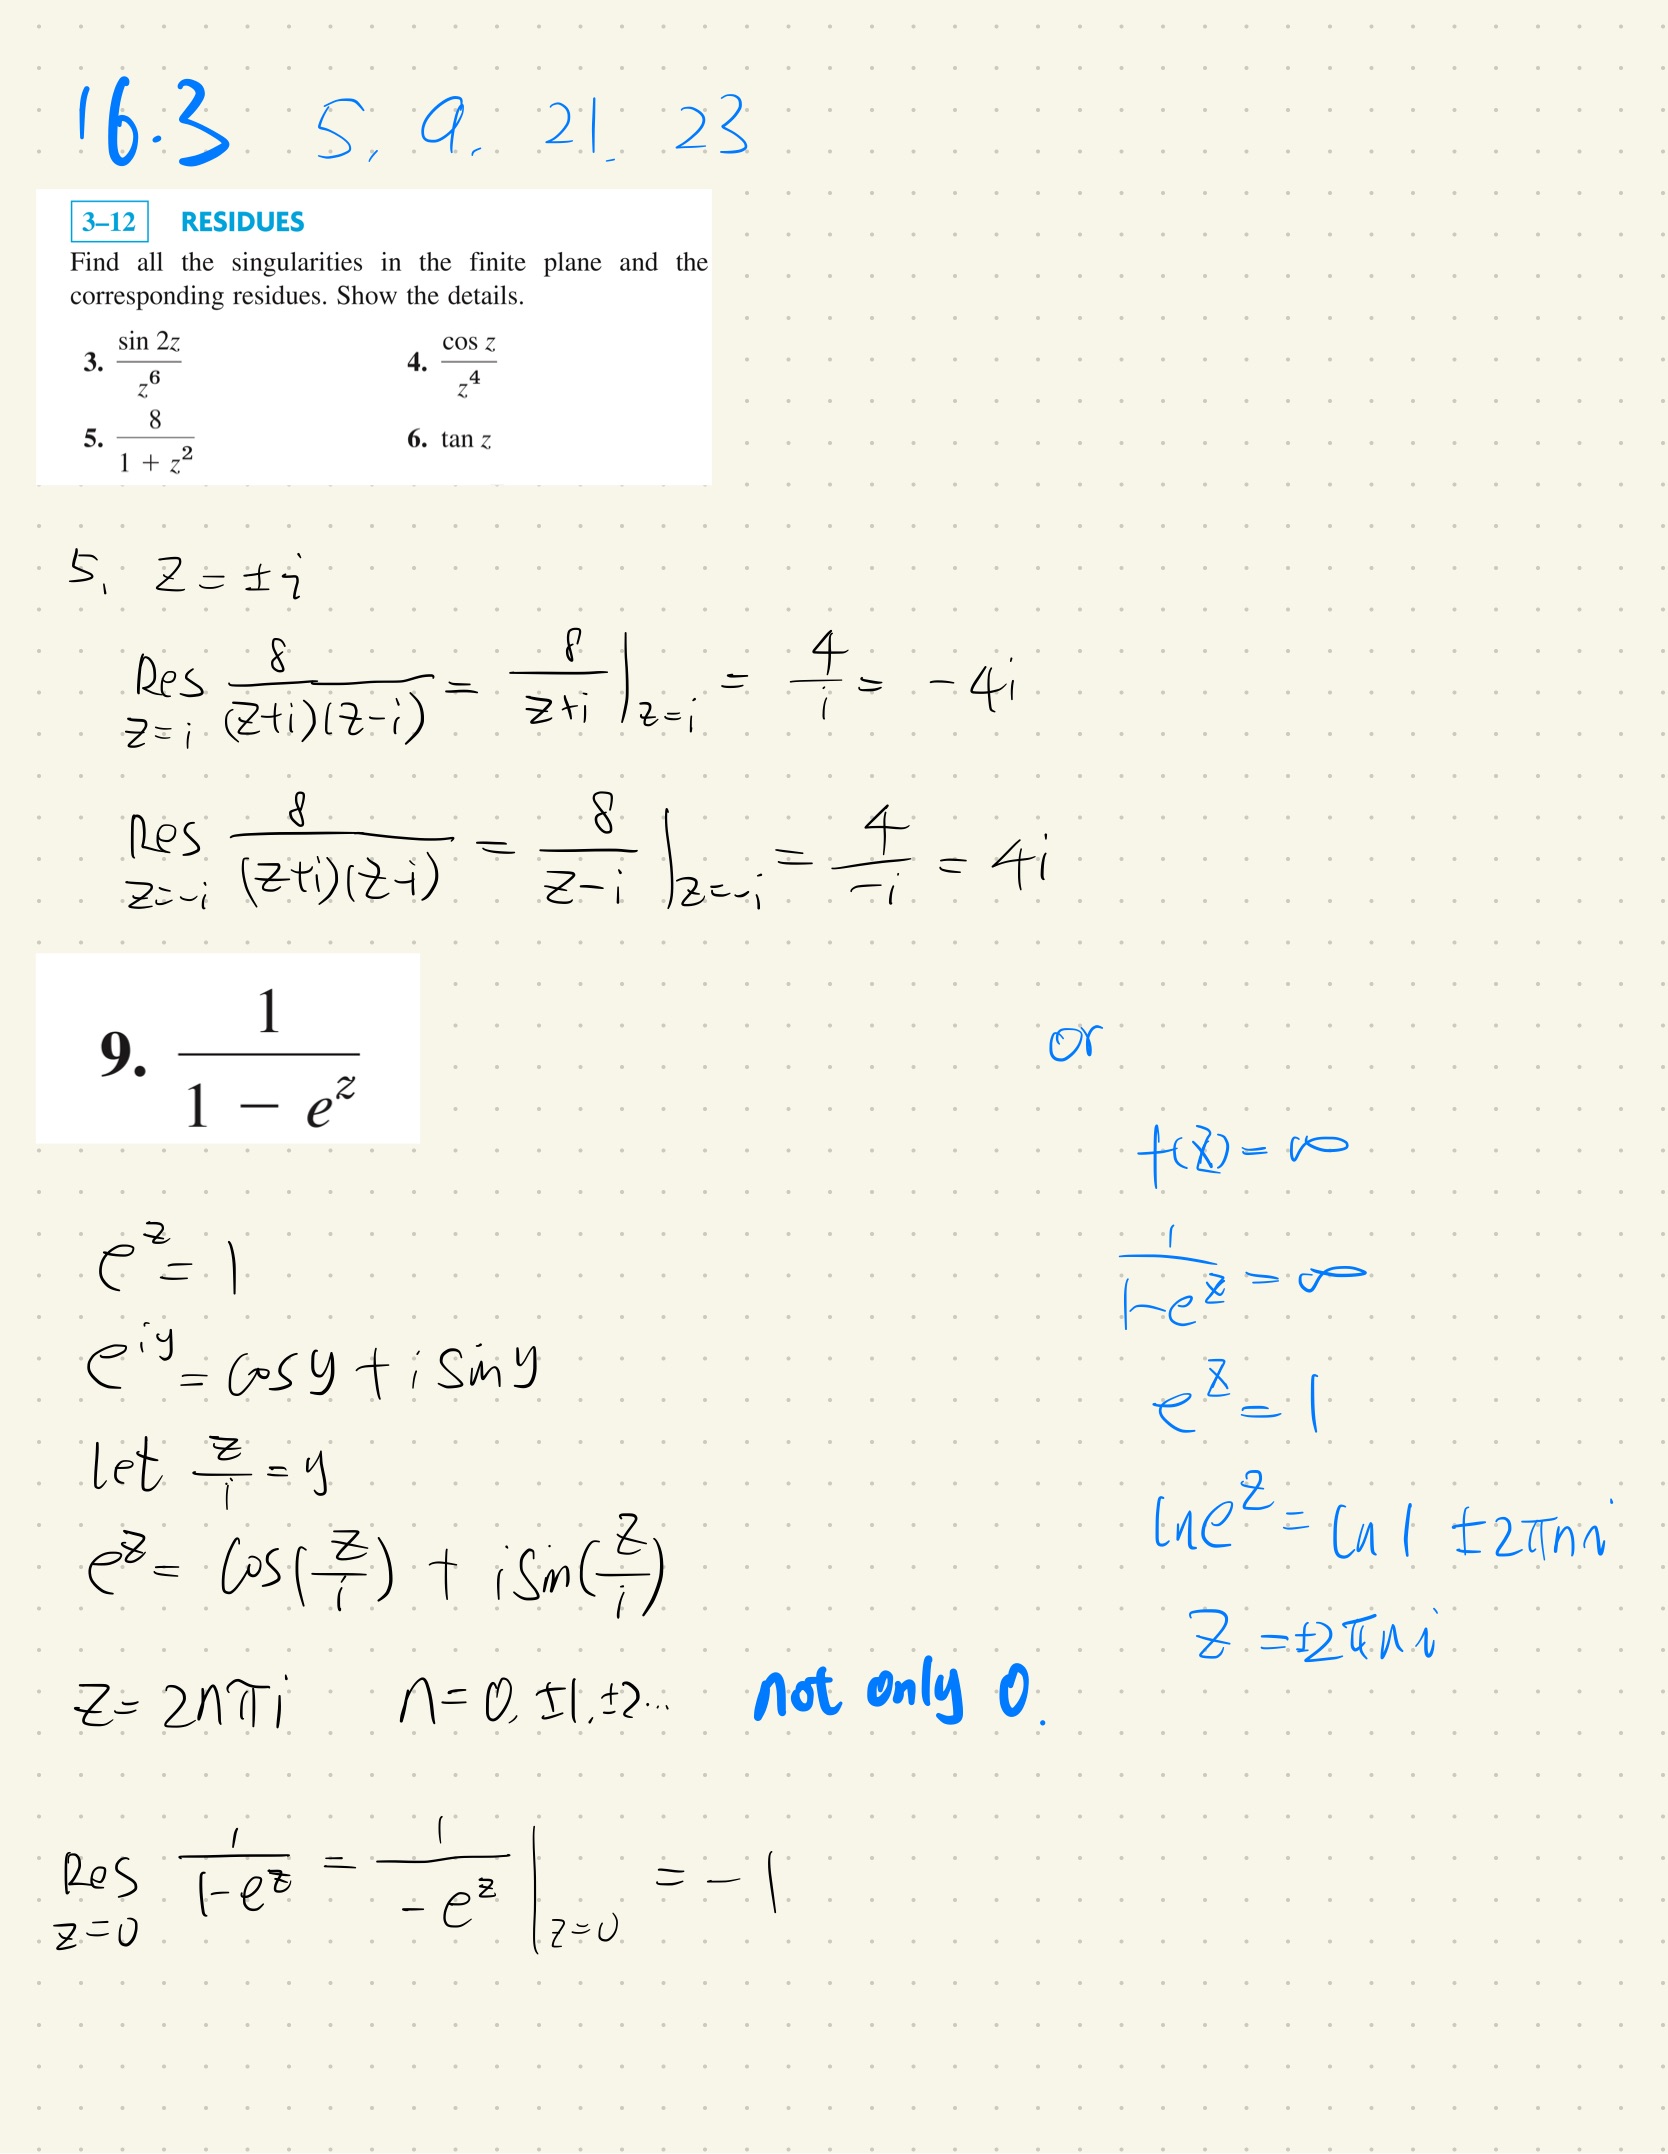 16.3 5, 9, 21, 23
3–12 RESIDUES
Find all the singularities in the finite plane and the
corresponding residues. Show the details.
3. sin 2z / z^6
4. cos z / z^4
5. 8 / (1 + z^2)
6. tan z
5, z = ±i
Res z=i 8 / ((z+i)(z-i)) = 8 / (z+i) | z=i = 4/i = -4i
Res z=-i 8 / ((z+i)(z-i)) = 8 / (z-i) | z=-i = 4/-i = 4i
9. 1 / (1 − e^z)
e^z = 1
e^iy = cos y + i sin y
let z/i = y
e^z = cos(z/i) + i sin(z/i)
z = 2nπi n = 0, ±1, ±2... not only 0.
Res z=0 1 / (1-e^z) = 1 / (-e^z) | z=0 = -1
or
f(z) = ∞
1 / (1-e^z) = ∞
e^z = 1
ln e^z = ln 1 ± 2πni
z = ±2πni